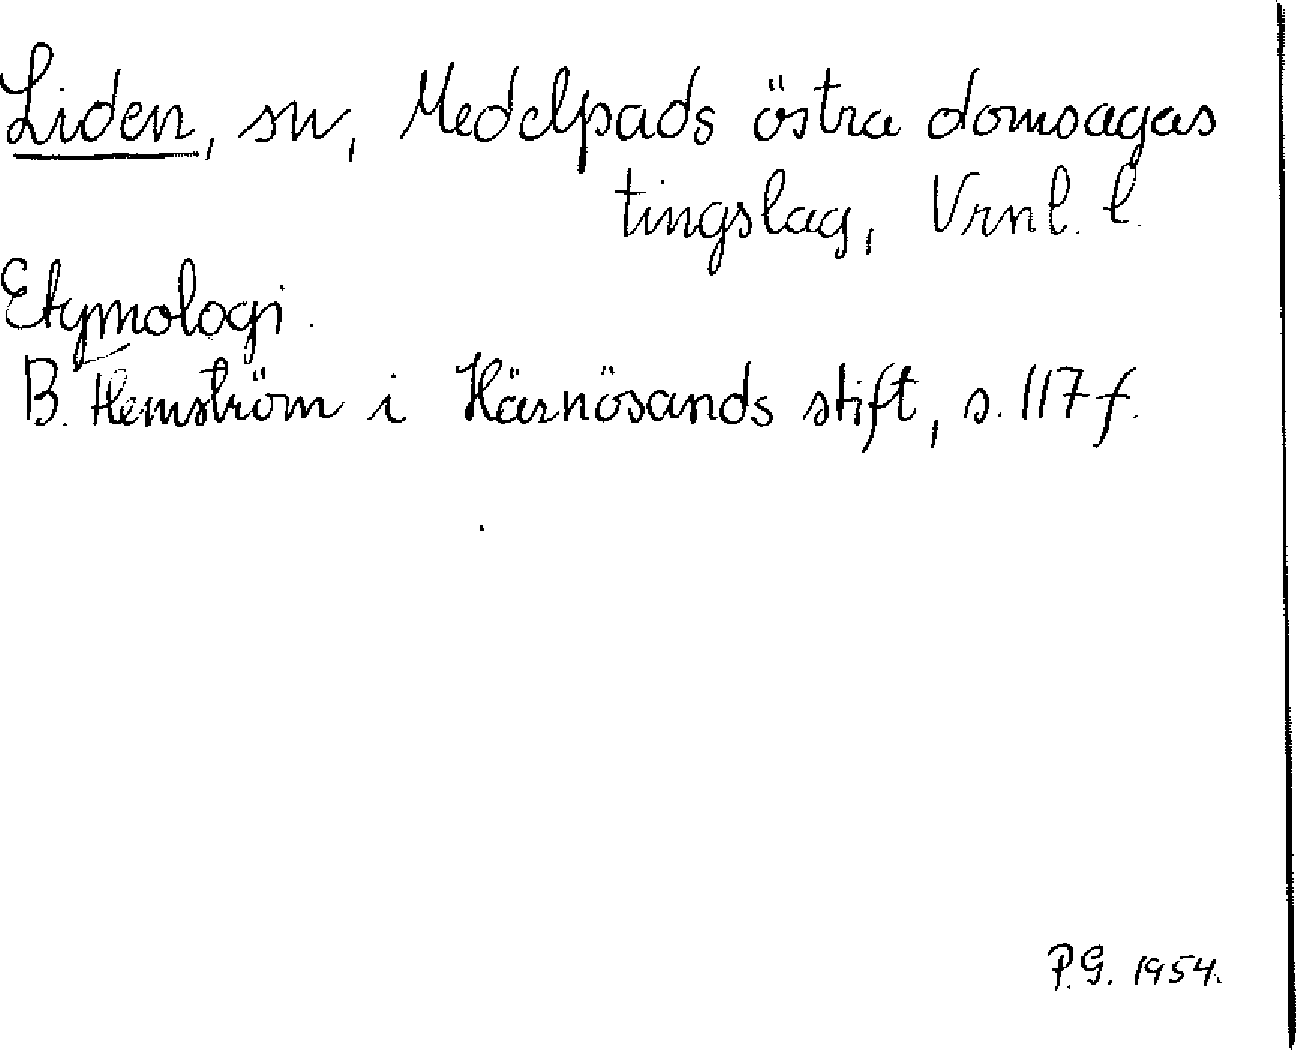 Liden, sn, Medelpads östra domsagas
tingslag, Vrnl. l.
Etymologi.
B. Hemström i Härnösands stift, s. 117 f.
P.G. 1954.